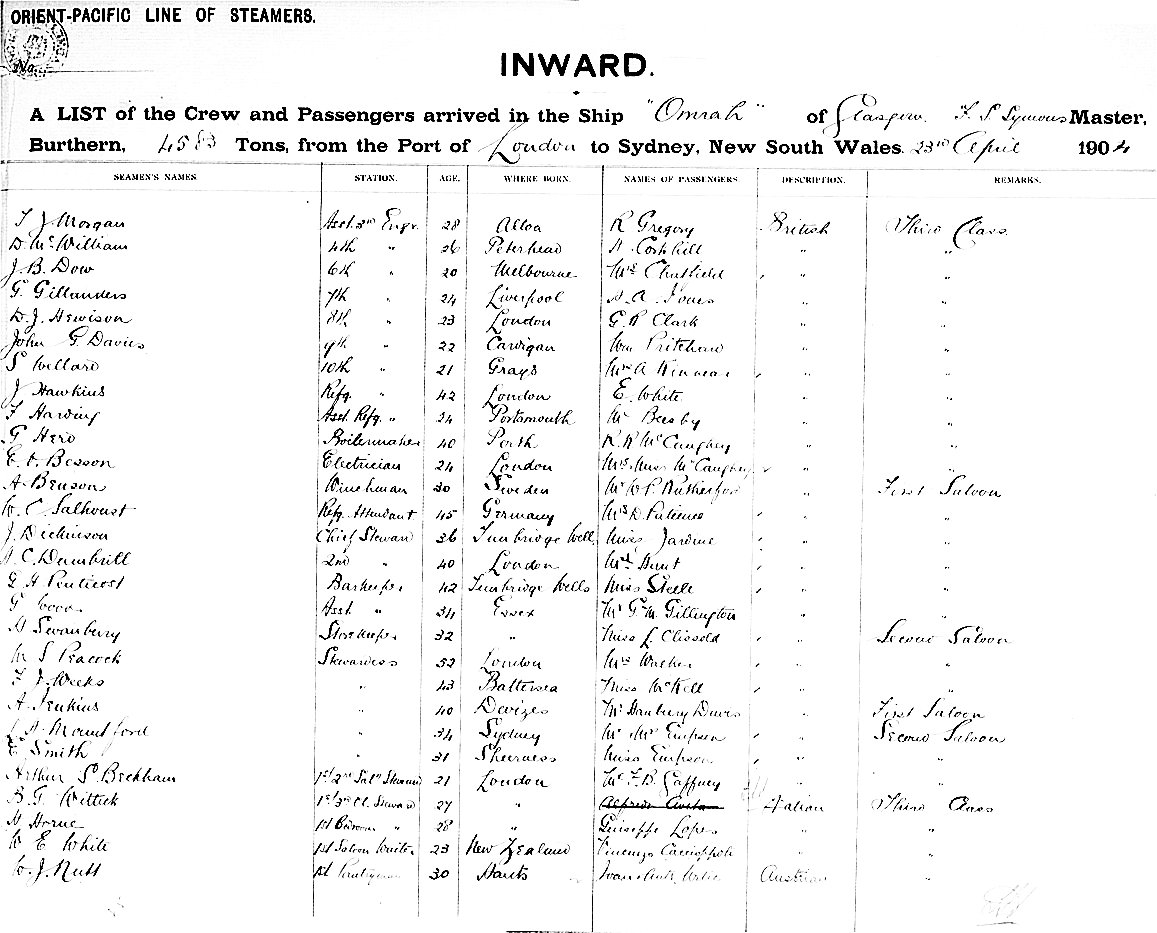 ORIENT-PACIFIC LINE OF STEAMERS.
No.
INWARD.
A LIST of the Crew and Passengers arrived in the Ship "Omrah" of Glasgow, F. S. Symons Master,
Burthern, 4583 Tons, from the Port of London to Sydney, New South Wales. 23rd April 1904
SEAMEN'S NAMES. STATION. AGE. WHERE BORN. NAMES OF PASSENGERS. DESCRIPTION. REMARKS.
T J Morgan Asst. 3rd Engr. 28 Alloa R Gregory British Third Class
D. McWilliam 4th " 26 Peterhead " "
J. B. Dow 6th " 20 Melbourne Mrs Chatfield " "
G. Gillanders 7th " 24 Liverpool " "
D. J. Hewison 8th " 23 London G. R Clark " "
John G. Davies 9th " 22 Cardigan Wm Pritchard " "
S Willard 10th " 21 Grays " "
J Hawkins Refg. " 42 London E. White " "
F Harding Asst. Refg. " 24 Portsmouth Mr Beesby " "
G Herd Boilermaker 40 Perth R. R McCaughey " "
Besson Electrician 24 London Mrs. Miss McCaughey " "
A. Benson Winchman 30 Sweden Mr W. P. Rutherford " First Saloon
W. C Salhoust Refg. Attendant 45 Germany Mrs D. Patience " "
J. Dickinson Chief Steward 36 Tunbridge Well, Miss Jardine " "
C. Dumbrill 2nd " 40 London Mrs Hunt " "
G H Penticost Barkeeper 42 Tunbridge Wells Miss Steele " "
G Asst. " 34 Essex Mr G. M. Gillington " "
A Swanbury Storekeeper 32 " Miss L. Clissold " Second Saloon
M S Peacock Stewardess 52 London Mrs Walker " "
F J. Weeks " 43 Battersea Miss McKell " "
A. Jenkins " 40 Devizes Mr Hanbury Davies " First Saloon
Mountford " 34 Sydney Mr Mrs Simpson " Second Saloon
E Smith " 31 Sheerness Miss Simpson " "
Arthur S Beckham 1st/2nd Saln Steward 21 London Mr F. B. Gaffney " "
B. G. Wittick 1st/3rd Cl. Steward 27 " Alfredo Italian Third Class
H Horne 1st Bedroom " 28 " Guiseppe Lopes " "
W E White 1st Saloon Waiter 23 New Zealand Vincenzo " "
W. J. Nutt 1st Pantryman 30 Hants Austrian "